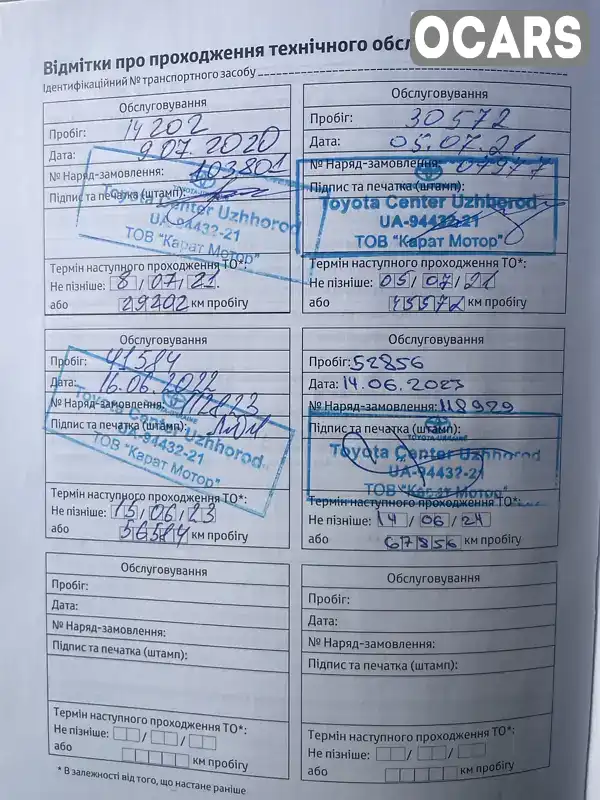 OCARS
Відмітки про проходження технічного обс
Ідентифікаційний № транспортного засобу
Обслуговування
Пробіг: 14202
Дата: 9.07.2020
№ Наряд-замовлення: 103801
Підпис та печатка (штамп):
Toyota Center Uzhhorod
UA-94432-21
ТОВ "Карат Мотор"
Термін наступного проходження ТО*:
Не пізніше: 8/07/21
або 29202 км пробігу
Обслуговування
Пробіг: 30572
Дата: 05.07.21
№ Наряд-замовлення:
Підпис та печатка (штамп):
Toyota Center Uzhhorod
UA-94432-21
ТОВ "Карат Мотор"
Термін наступного проходження ТО*:
Не пізніше: 05/07/21
або 45572 км пробігу
Обслуговування
Пробіг: 41584
Дата: 16.06.2022
№ Наряд-замовлення: 112823
Підпис та печатка (штамп):
Toyota Center Uzhhorod
UA-94432-21
ТОВ "Карат Мотор"
Термін наступного проходження ТО*:
Не пізніше: 15/06/23
або 56584 км пробігу
Обслуговування
Пробіг: 52856
Дата: 14.06.2023
№ Наряд-замовлення: 118929
Підпис та печатка (штамп):
TOYOTA UKRAINE
Toyota Center Uzhhorod
UA-94432-21
ТОВ "Карат Мотор"
Термін наступного проходження ТО*:
Не пізніше: 14/06/24
або 67856 км пробігу
Обслуговування
Пробіг:
Дата:
№ Наряд-замовлення:
Підпис та печатка (штамп):
Термін наступного проходження ТО*:
Не пізніше: / /
або км пробігу
Обслуговування
Пробіг:
Дата:
№ Наряд-замовлення:
Підпис та печатка (штамп):
Термін наступного проходження ТО*:
Не пізніше: / /
або км пробігу
* В залежності від того, що настане раніше